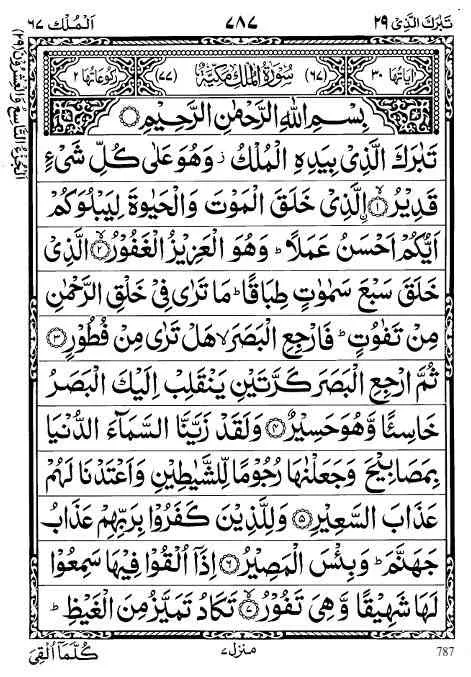 تَبٰرَكَ الَّذِىْ ٢٩ ٧٨٧ اَلْمُلْك ٦٧
اٰيَاتُهَا ٣٠ (٦٧) سُوْرَةُ الْمُلْكِ مَكِّيَّةٌ (٧٧) رُكُوْعَاتُهَا ٢
بِسْمِ اللّٰهِ الرَّحْمٰنِ الرَّحِيْمِ
تَبٰرَكَ الَّذِىْ بِيَدِهِ الْمُلْكُ ز وَهُوَ عَلٰى كُلِّ شَىْءٍ
قَدِيْرُ ۨ ۙ﴿١﴾ الَّذِىْ خَلَقَ الْمَوْتَ وَالْحَيٰوةَ لِيَبْلُوَكُمْ
اَيُّكُمْ اَحْسَنُ عَمَلًا ؕ وَهُوَ الْعَزِيْزُ الْغَفُوْرُ ۙ﴿٢﴾ الَّذِىْ
خَلَقَ سَبْعَ سَمٰوٰتٍ طِبَاقًا ؕ مَا تَرٰى فِىْ خَلْقِ الرَّحْمٰنِ
مِنْ تَفٰوُتٍ ؕ فَارْجِعِ الْبَصَرَ ۙ هَلْ تَرٰى مِنْ فُطُوْرٍ ﴿٣﴾
ثُمَّ ارْجِعِ الْبَصَرَ كَرَّتَيْنِ يَنْقَلِبْ اِلَيْكَ الْبَصَرُ
خَاسِئًا وَّهُوَ حَسِيْرٌ ﴿٤﴾ وَلَقَدْ زَيَّنَّا السَّمَآءَ الدُّنْيَا
بِمَصَابِيْحَ وَجَعَلْنٰهَا رُجُوْمًا لِّلشَّيٰطِيْنِ وَاَعْتَدْنَا لَهُمْ
عَذَابَ السَّعِيْرِ ﴿٥﴾ وَلِلَّذِيْنَ كَفَرُوْا بِرَبِّهِمْ عَذَابُ
جَهَنَّمَ ؕ وَبِئْسَ الْمَصِيْرُ ﴿٦﴾ اِذَآ اُلْقُوْا فِيْهَا سَمِعُوْا
لَهَا شَهِيْقًا وَّهِىَ تَفُوْرُ ۙ﴿٧﴾ تَكَادُ تَمَيَّزُ مِنَ الْغَيْظِ ؕ
كُلَّمَآ اُلْقِىَ منزل ٧ 787
اَلْجُزْءُ التَّاسِعُ وَالْعِشْرُوْنَ (٢٩)